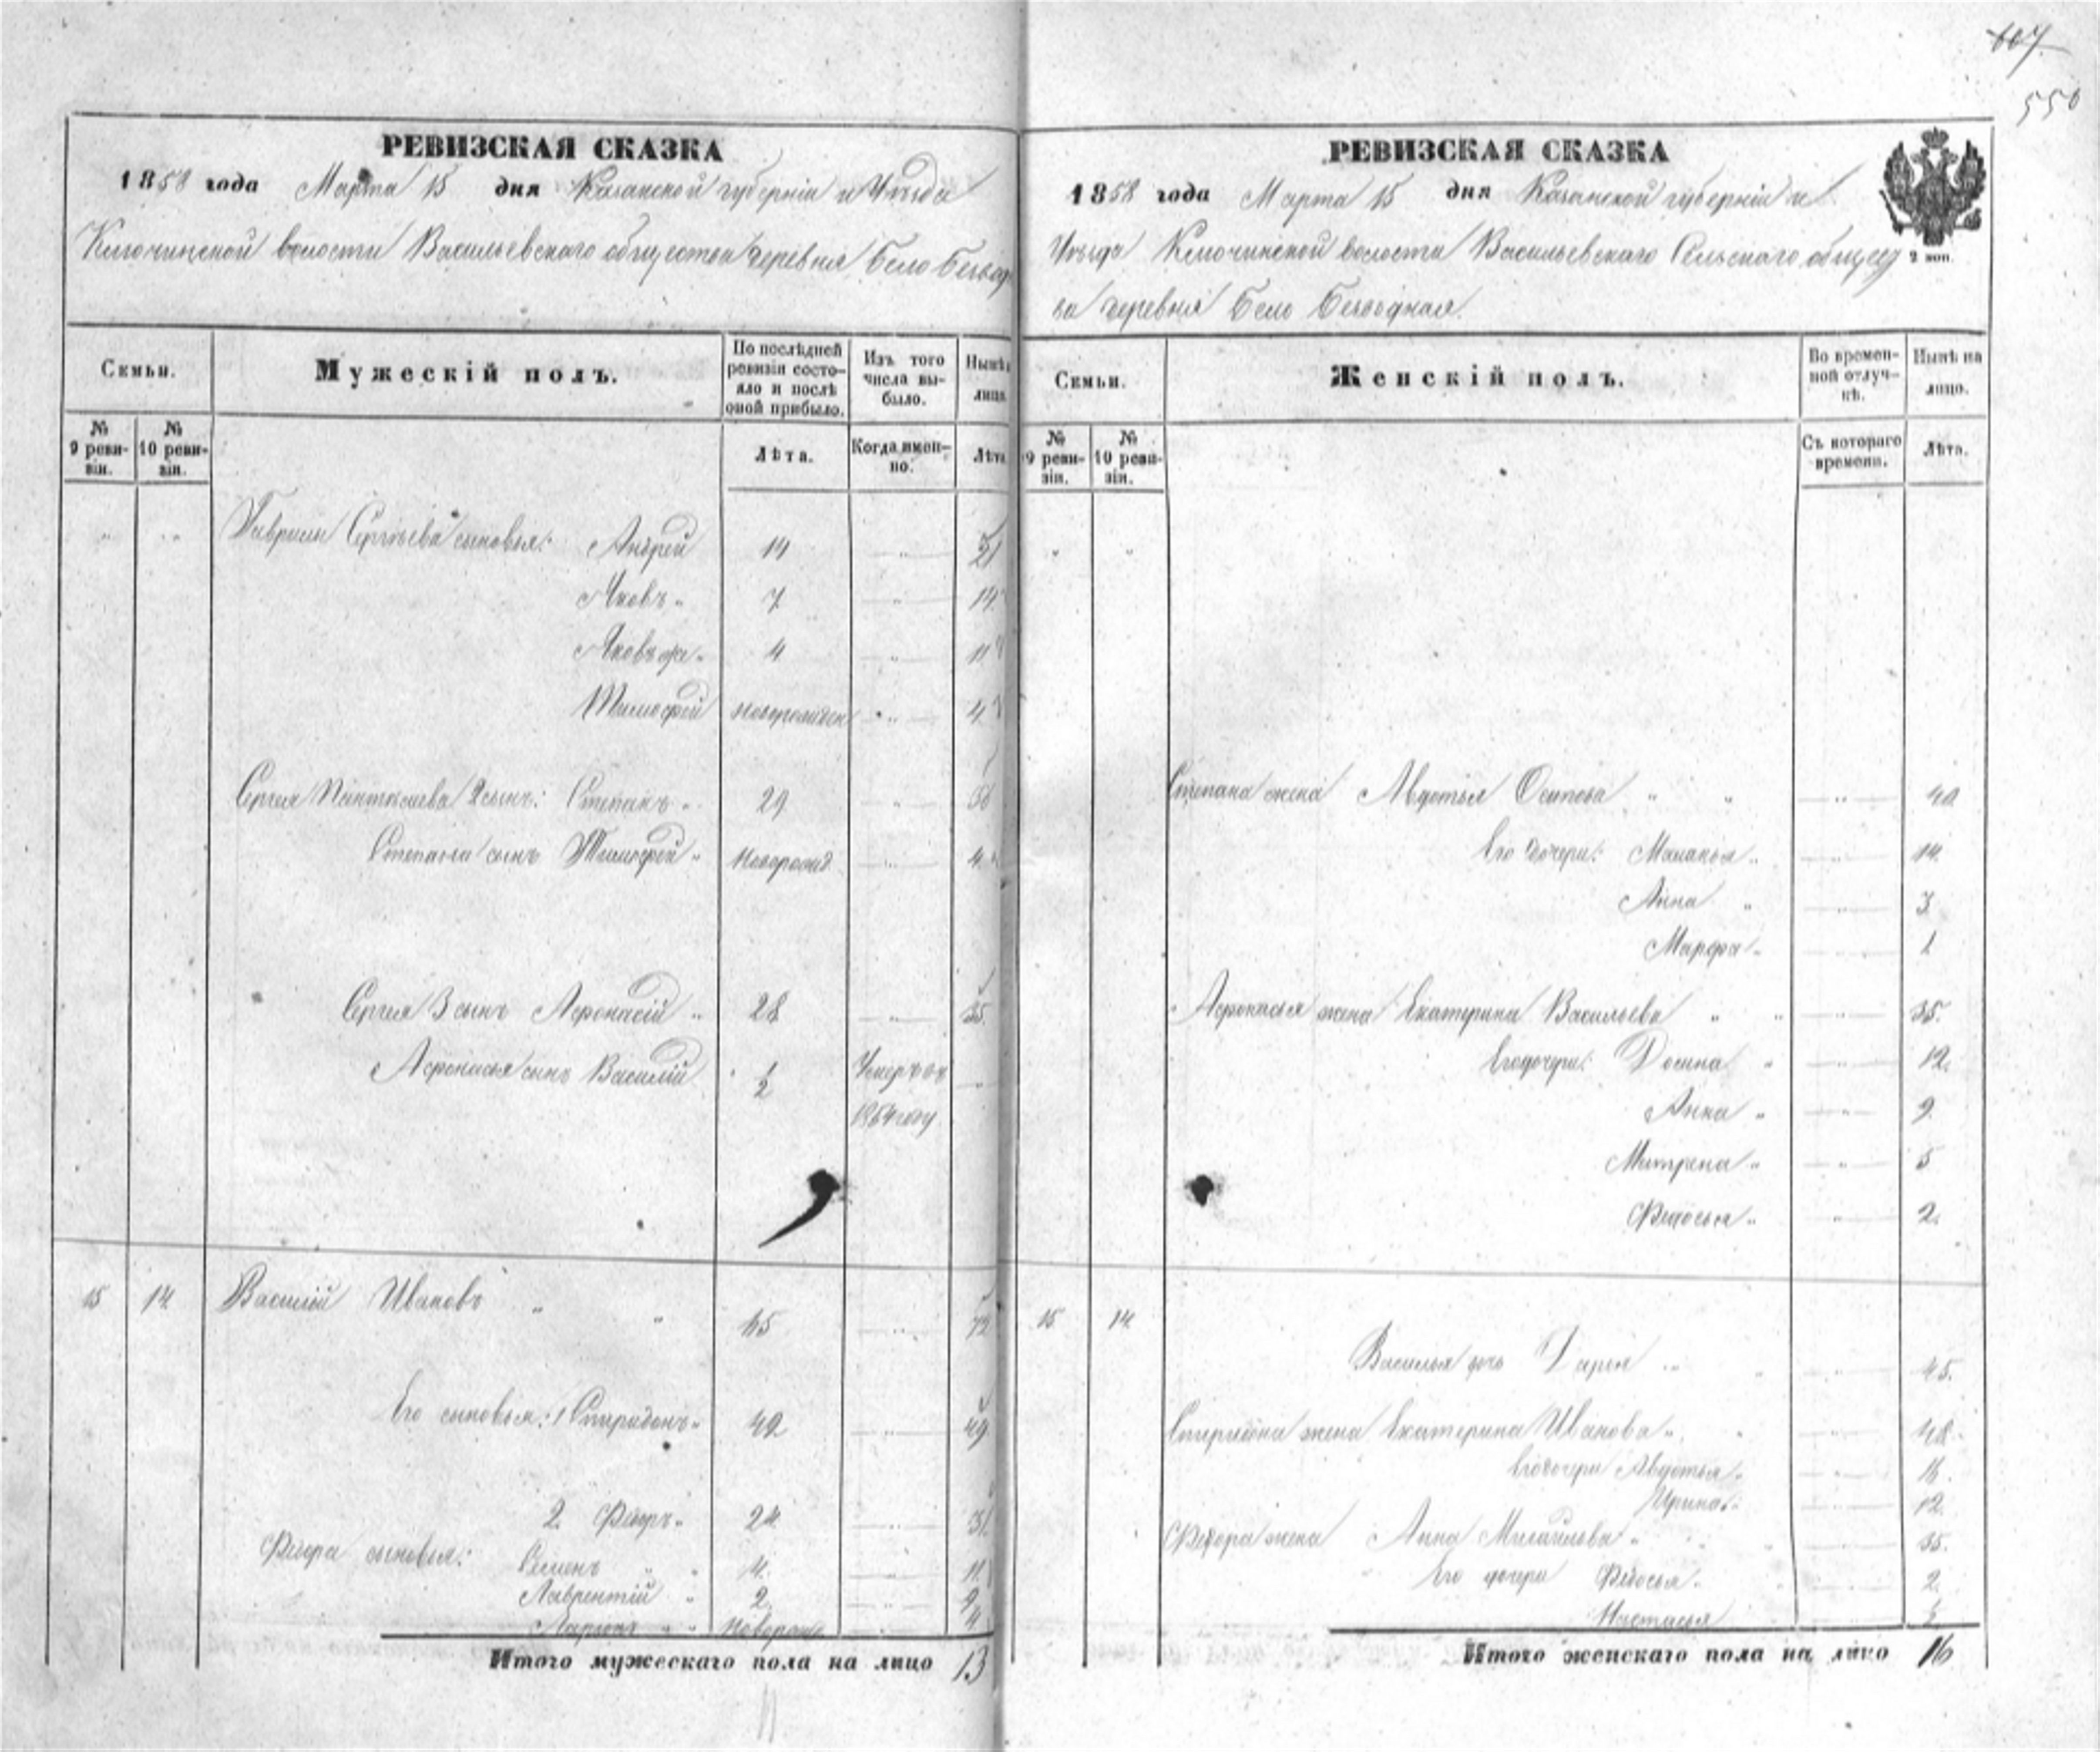 607
556
РЕВИЗСКАЯ СКАЗКА
1858 года Марта 15 дня Казанской губерніи и Уѣзда
Ключинской волости Васильевскаго общества деревня Бело Безвод
Семьи.
Мужескій полъ.
По послѣдней ревизіи состояло и послѣ оной прибыло.
Изъ того числа выбыло.
Нынѣ лицо
№ 9 ревизіи.
№ 10 ревизіи.
Лѣта.
Когда именно.
Лѣта
Гаврилы Сергѣева сыновья: Андрей 14 " 21
Яковъ " 7 " 14
Яковъ же " 4 " 11
Тимофей новорожден " 4
Сергея Пантелеева 2 сынъ: Степанъ " 29 " 36
Степана сынъ Тимофей " новорожд " 4
Сергея 3 сынъ Афонасій " 28 " 35
Афонасья сынъ Василій 1/2 Умеръ въ "
1854 году
15 14 Василій Ивановъ " " 65 " 72
Его сыновья: 1 Спиридонъ " 42 " 49
2 Фёдоръ " 24 " 31
Федора сыновья: Семенъ " " 4 " 11
Лаврентій " 2 " 9
Ларіонъ " " новорож " 4
Итого мужескаго пола на лицо 13
РЕВИЗСКАЯ СКАЗКА
1858 года Марта 15 дня Казанской губерніи и
Уѣзда Ключинской волости Васильевскаго Сельскаго общест
2 коп.
ва деревня Бело Безводная.
Семьи.
Женскій полъ.
Во временной отлучкѣ.
Нынѣ на лицо.
№ 9 ревизіи.
№ 10 ревизіи.
Съ котораго времени.
Лѣта.
Степана жена Авдотья Осипова " " " 40
Его дочери: Маланья " " 14
Анна " " 3
Марфа " " 1
Афонасья жена Екатерина Васильева " " " 35.
Его дочери: Домна " " 12.
Анна " " 9
Матрена " " 5
Федосья " " 2.
15 14
Василья дочь Дарья " " 45.
Спиридона жена Екатерина Иванова " " " 48
Его дочери Авдотья " " 16
Ирина " " 12
Федора жена Анна Михайлова " " " 35.
Его дочери Федосья " " 2
Настасья "
Итого женскаго пола на лицо 16